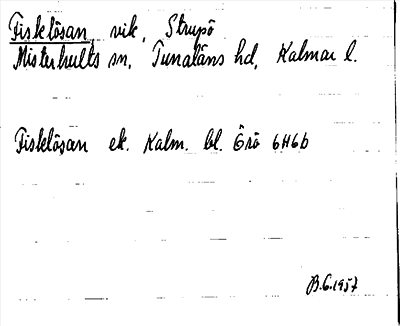 Fisklösan, vik, Strupö
Misterhults sn, Tunaläns hd, Kalmar l.
Fisklösan ek. Kalm. bl. Örö 6H6b
B.G.1957